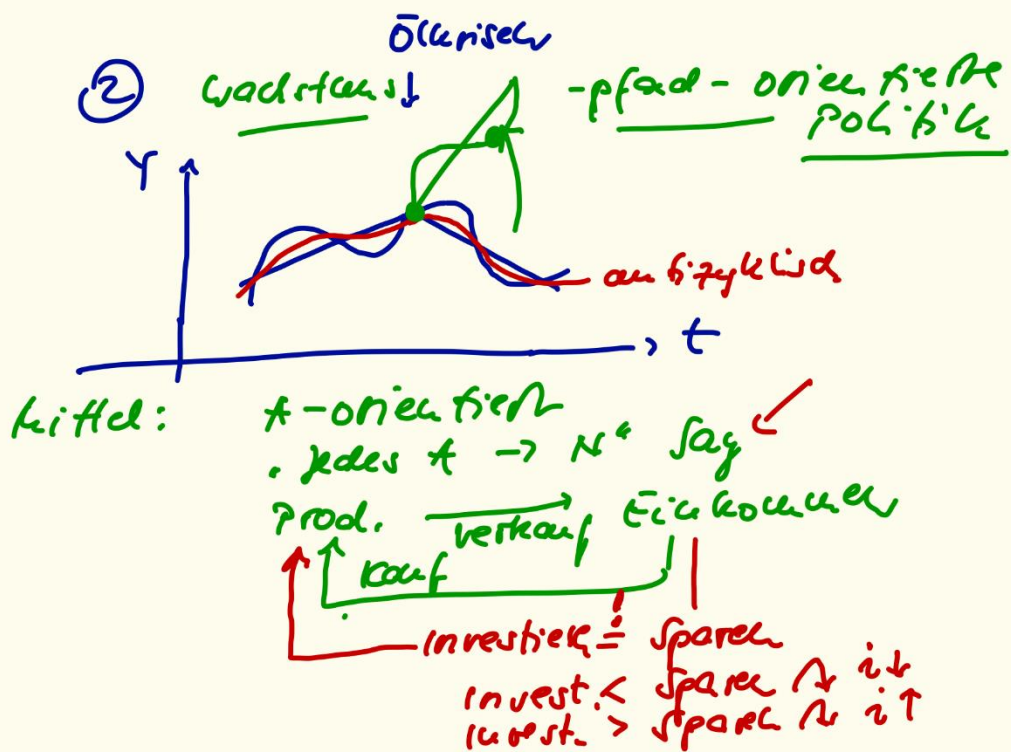 Ölkrisen
② Wachstums ↓ -pfad-orientierte
Politik
Y
antizyklisch
t
Mittel: A-orientiert
„jedes A → N“ Say
Prod. → Verkauf Einkommen
Kauf
investieren = Sparen
invest. < Sparen → i↓
invest. > Sparen → i↑